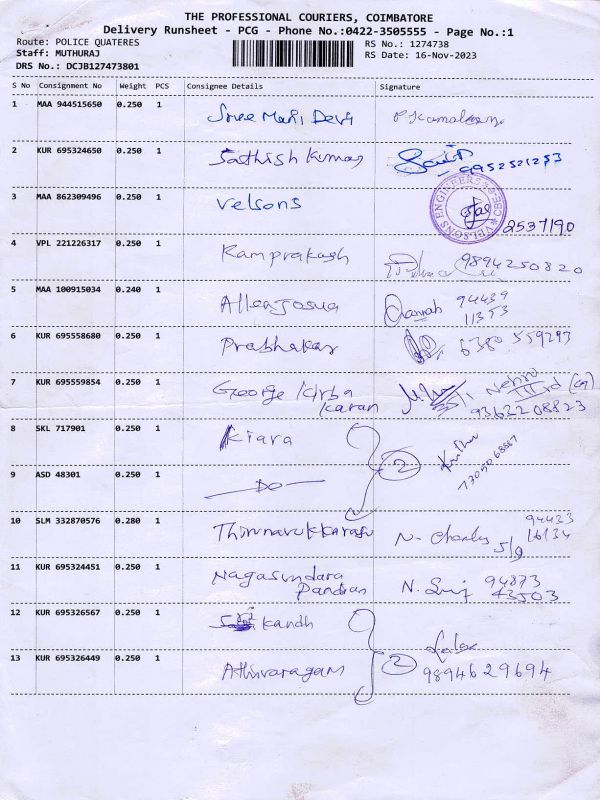 THE PROFESSIONAL COURIERS, COIMBATORE
Delivery Runsheet - PCG - Phone No.:0422-3505555 - Page No.:1
Route: POLICE QUATERES
RS No.: 1274738
Staff: MUTHURAJ
RS Date: 16-Nov-2023
DRS No.: DCJB127473801
S No Consignment No Weight PCS Consignee Details Signature
1 MAA 944515650 0.250 1 Sree Mari Devi
2 KUR 695324650 0.250 1 Sathish Kumar 9952521253
3 MAA 862309496 0.250 1 Velsons VELSONS ENGINEERS 2537190
4 VPL 221226317 0.250 1 Ramprakash 9894250820
5 MAA 100915034 0.240 1 Allenjosua Hannah 94439
11353
6 KUR 695558680 0.250 1 Prabhakar 6380 559293
7 KUR 695559854 0.250 1 George Kirba Nehru
Karan 9363208823
8 SKL 717901 0.250 1 Kiara 2
9 ASD 48301 0.250 1 -Do-
10 SLM 332870576 0.280 1 Thirunavukkarasu N. Charles 94433
16134
5/9
11 KUR 695324451 0.250 1 Nagasundara N. 94873
Pandian 43503
12 KUR 695326567 0.250 1 kandh
13 KUR 695326449 0.250 1 Athivaragam 2 9894629694